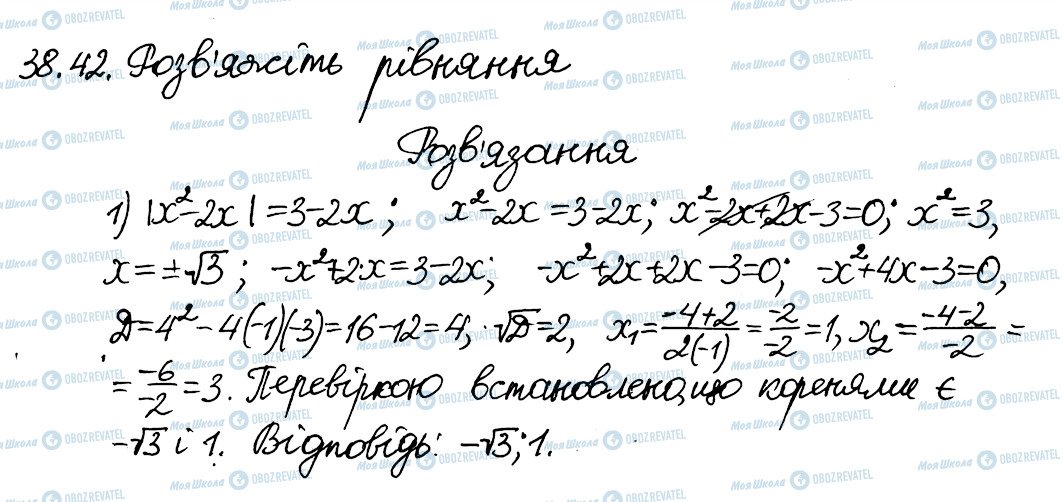 38.42. Розв'яжіть рівняння
Розв'язання
1) |x²-2x|=3-2x; x²-2x=3-2x; x²-2x+2x-3=0; x²=3,
x=±√3; -x²+2·x=3-2x; -x²+2x+2x-3=0; -x²+4x-3=0,
D=4²-4(-1)(-3)=16-12=4, √D=2, x₁=(-4+2)/(2(-1))=(-2)/(-2)=1, x₂=(-4-2)/(-2)=
=(-6)/(-2)=3. Перевіркою встановлено, що коренями є
-√3 і 1. Відповідь: -√3; 1.